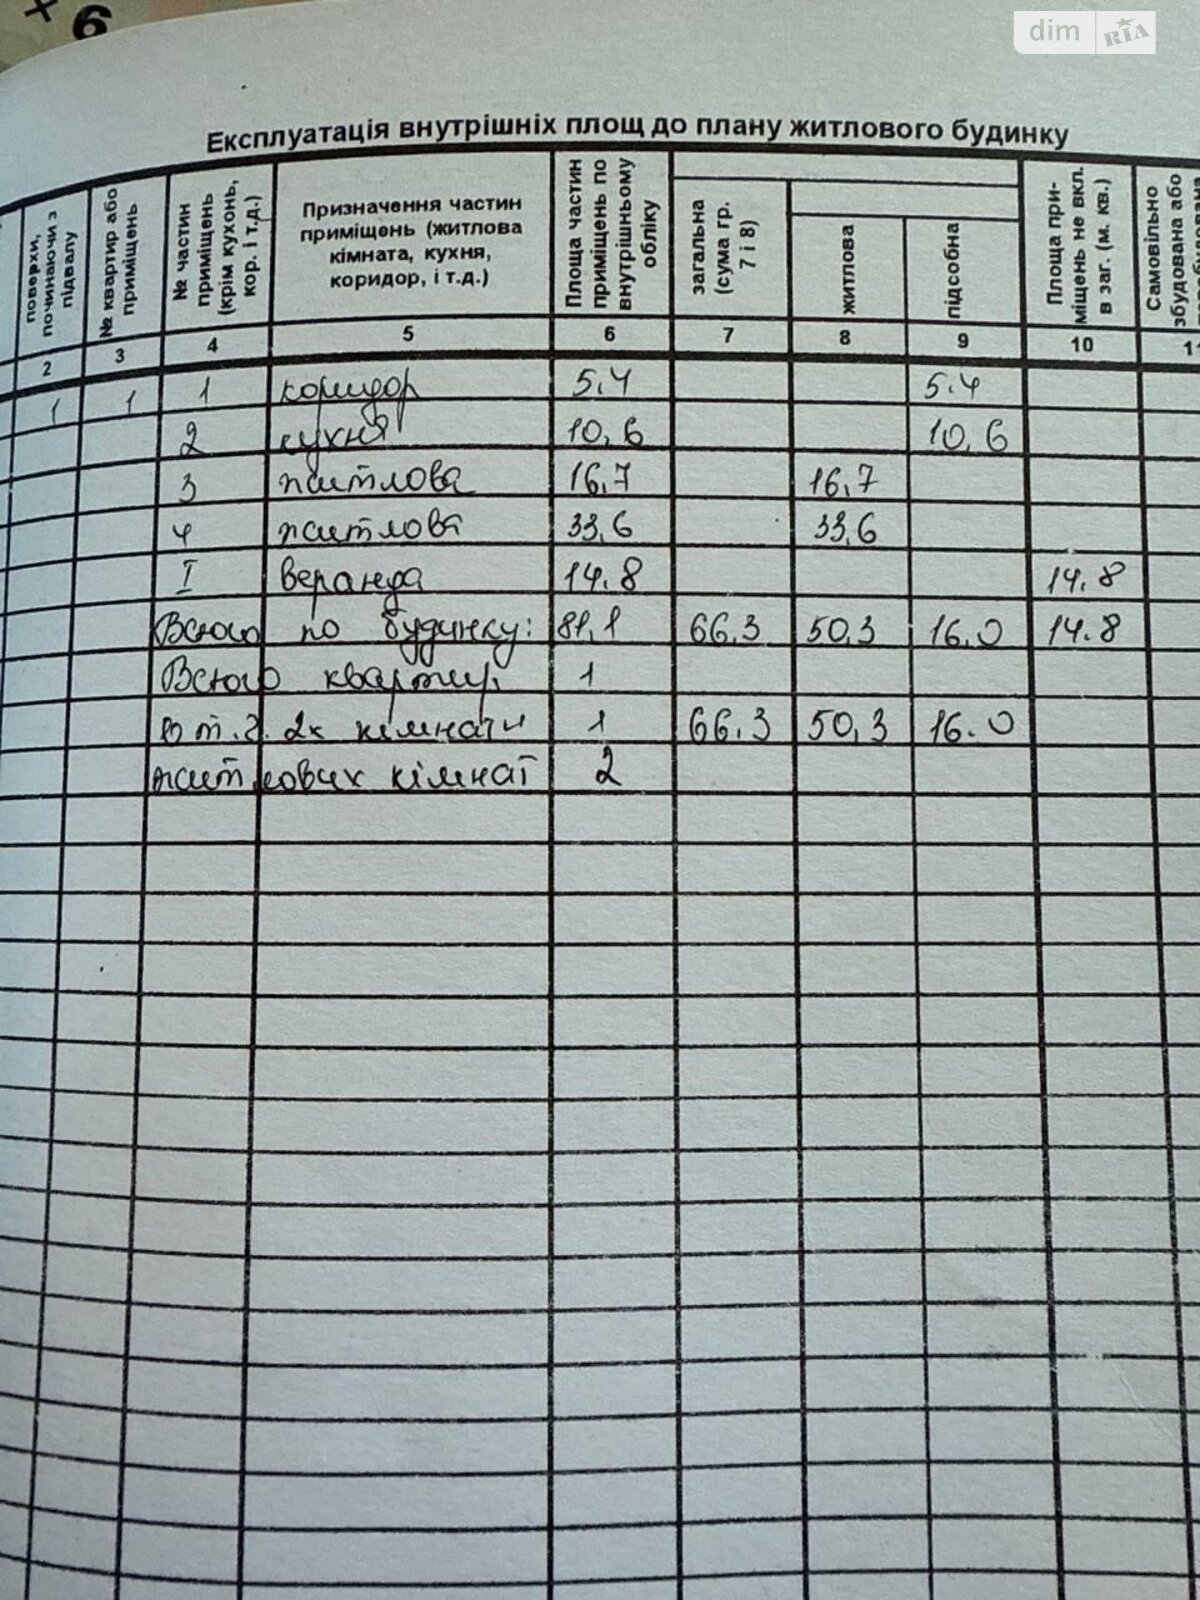 × 6
dim RIA
Експлуатація внутрішніх площ до плану житлового будинку
поверхи, починаючи з підвалу
№ квартир або приміщень
№ частин приміщень (крім кухонь, кор. і т.д.)
Призначення частин
приміщень (житлова
кімната, кухня,
коридор, і т.д.)
Площа частин приміщень по внутрішньому обліку
загальна (сума гр. 7 і 8)
житлова
підсобна
Площа приміщень не вкл. в заг. (м. кв.)
Самовільно збудована або
2 3 4 5 6 7 8 9 10 11
1 1 1 коридор 5.4 5.4
2 кухня 10,6 10,6
3 житлова 16,7 16,7
4 житлова 33,6 33,6
I веранда 14.8 14.8
Всього по будинку: 81,1 66.3 50.3 16.0 14.8
Всього квартир 1
в т.ч. 2х кімнатн 1 66.3 50,3 16.0
житлових кімнат 2